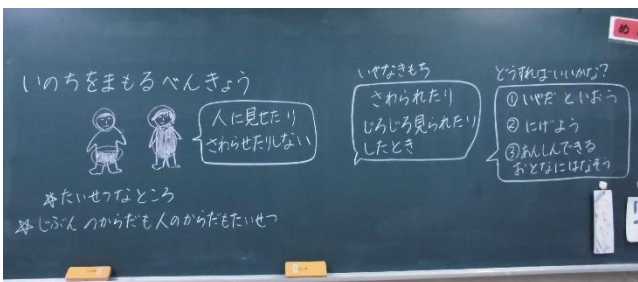 いのちをまもるべんきょう
人に見せたり
さわらせたりしない
＊たいせつなところ
＊じぶんのからだも人のからだもたいせつ
いやなきもち
さわられたり
じろじろ見られたり
したとき
どうすればいいかな?
①いやだ といおう
②にげよう
③あんしんできる
おとなにはなそう
め